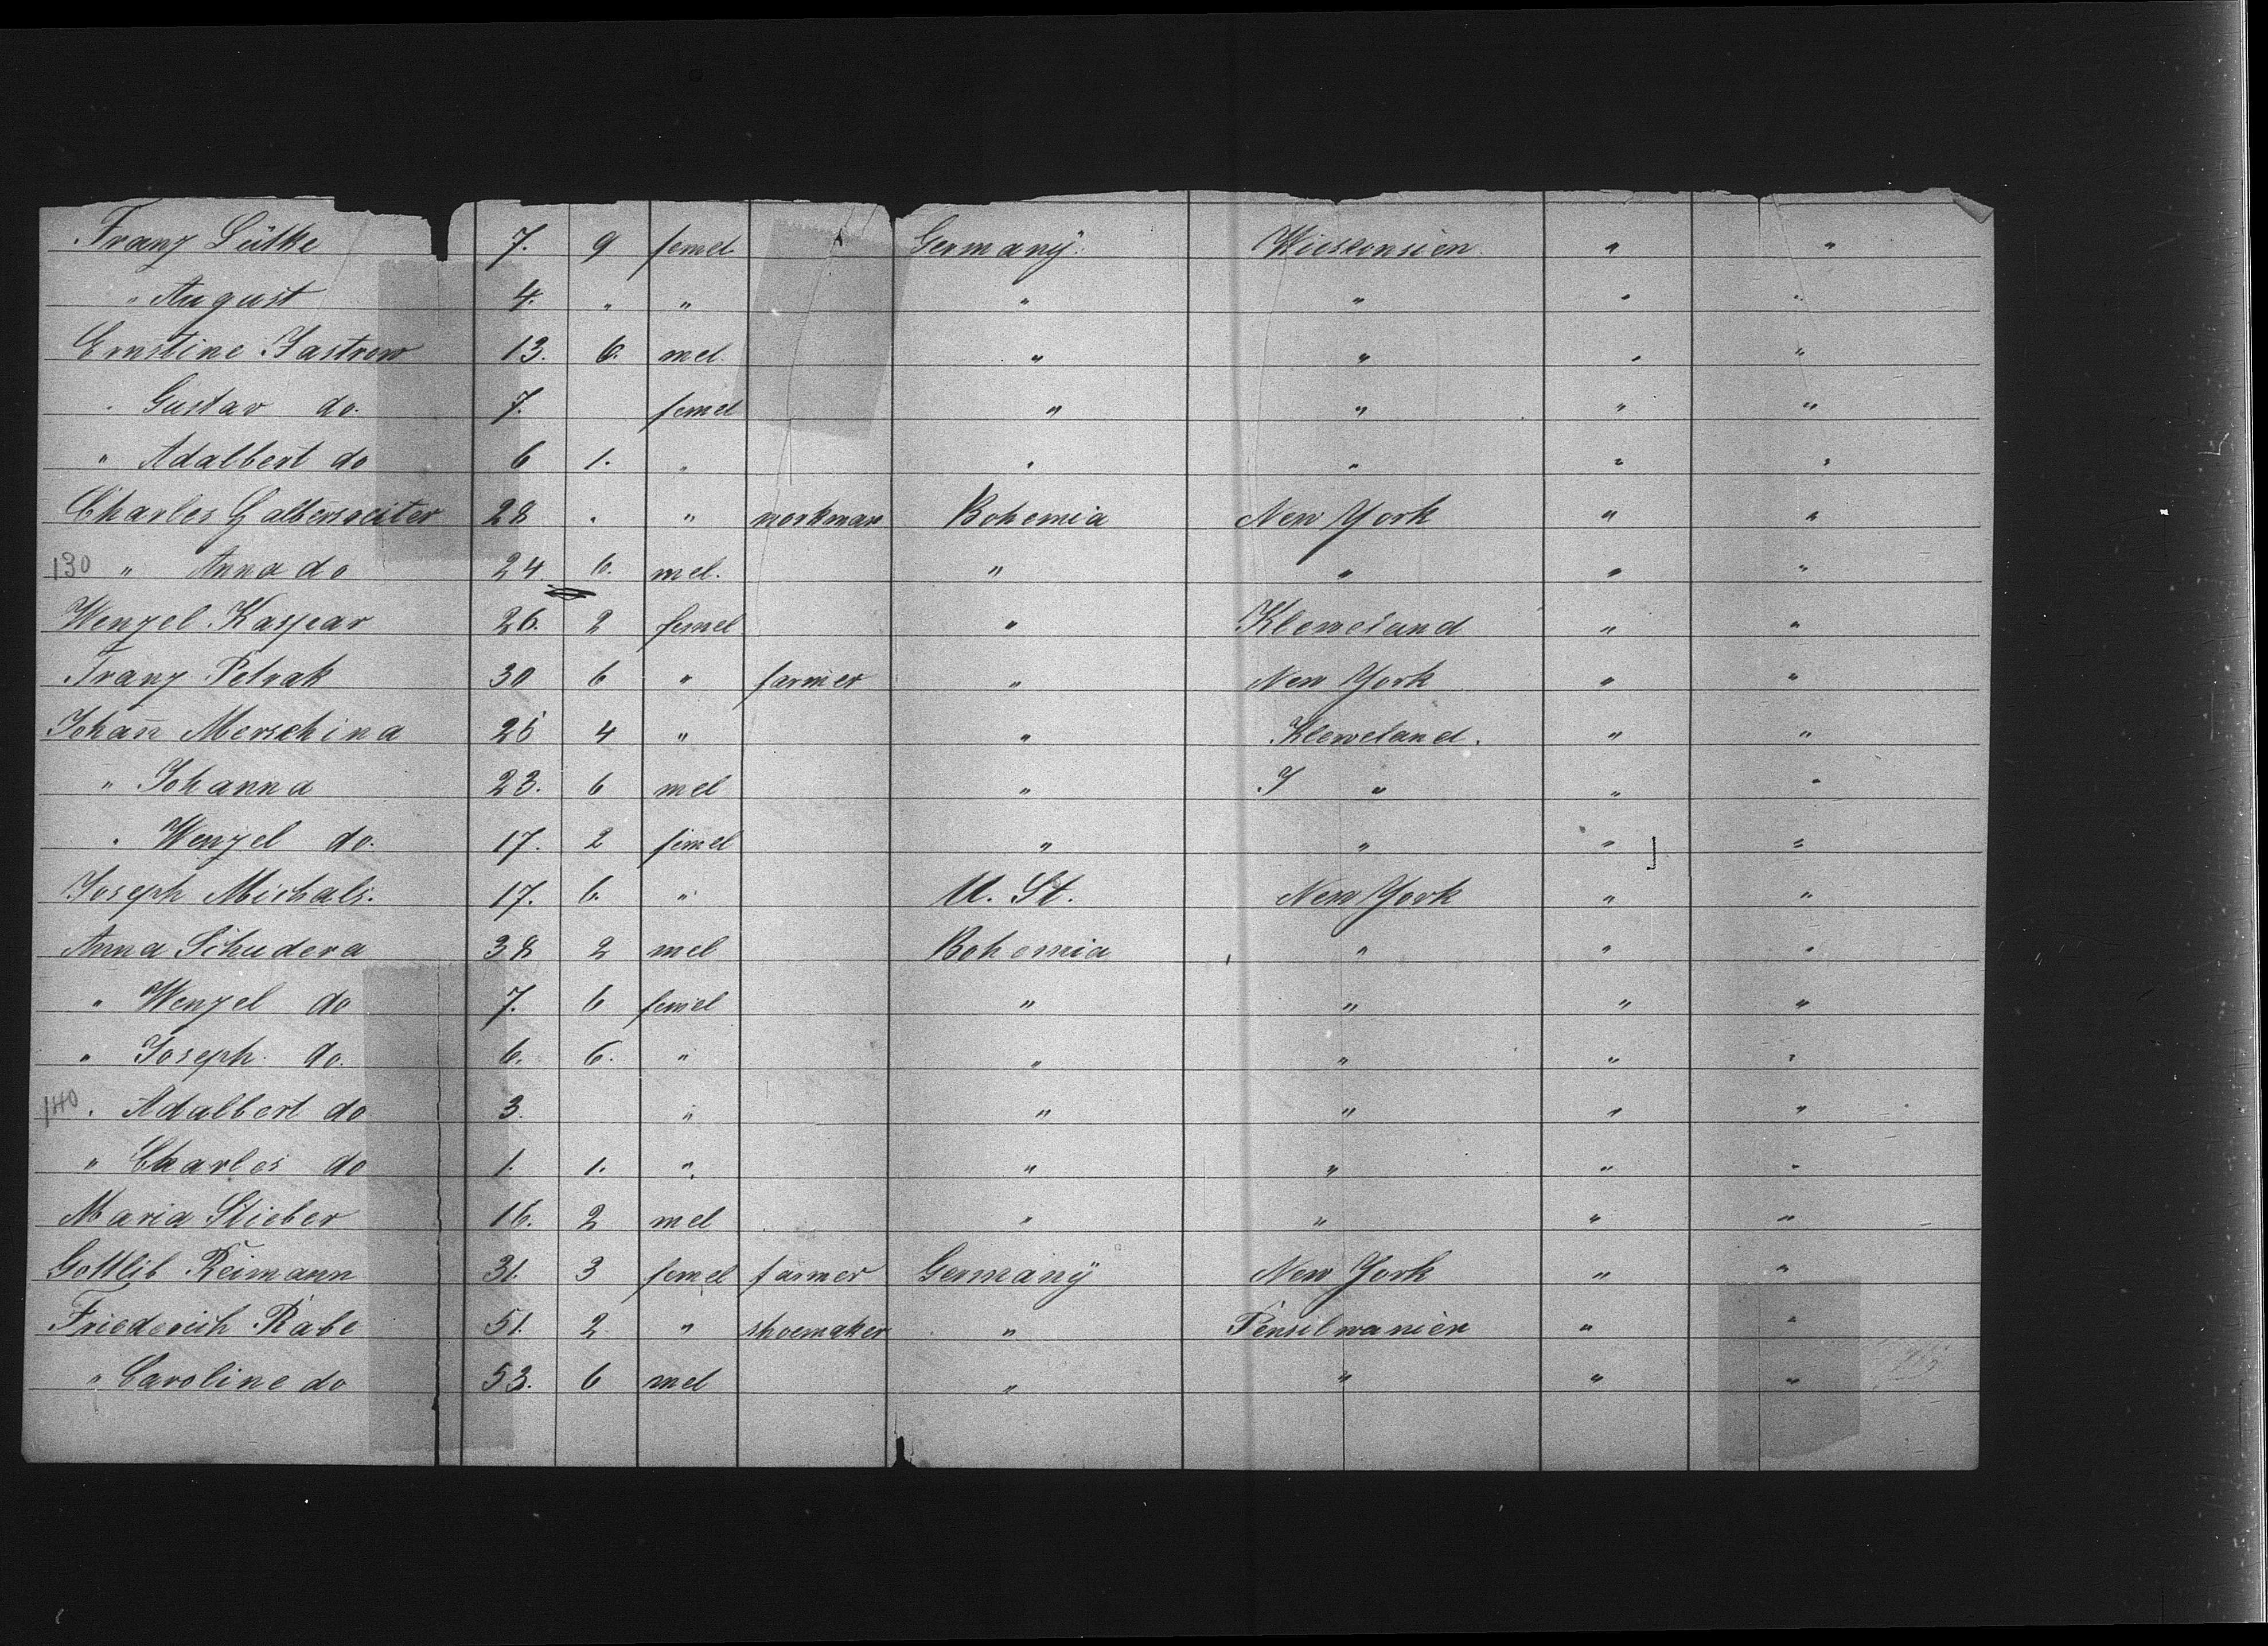 Franz Lütke 7. 9 femel Germany. Wiesconsien " "
" August 4. " " " " " "
Ernstine Jastrow 13. 6. mel " " " "
" Gustav do. 7. femel " " " "
" Adalbert do 6 1. " " " " "
Charles 28 " " workman Bohemia New York " "
130 " Anna do 24 6. mel. " " " "
Wenzel Kaspar 26. 2 femel " Kleweland " "
Franz Petrak 30 6 " farmer " New York " "
Johan̄ Merschina 25 4 " " Kleweland. " "
" Johanna 23. 6 mel " J " " "
" Wenzel do. 17. 2 femel " " " "
Joseph Michals. 17. 6. " U. St. New York " "
Anna Schudera 38 2 mel Bohemia " " "
" Wenzel do 7. 6 femel " " " "
" Joseph do. 6. 6. " " " " "
140 " Adalbert do 3. " " " " "
" Charles do 1. 1. " " " " "
Maria Stieber 16. 2 mel " " " "
Gottlib Reimann 31. 3 femel farmer Germany New York " "
Friederich Rabe 51. 2 " shoemaker " Pensilwanien " "
" Caroline do 53. 6 mel " " " "